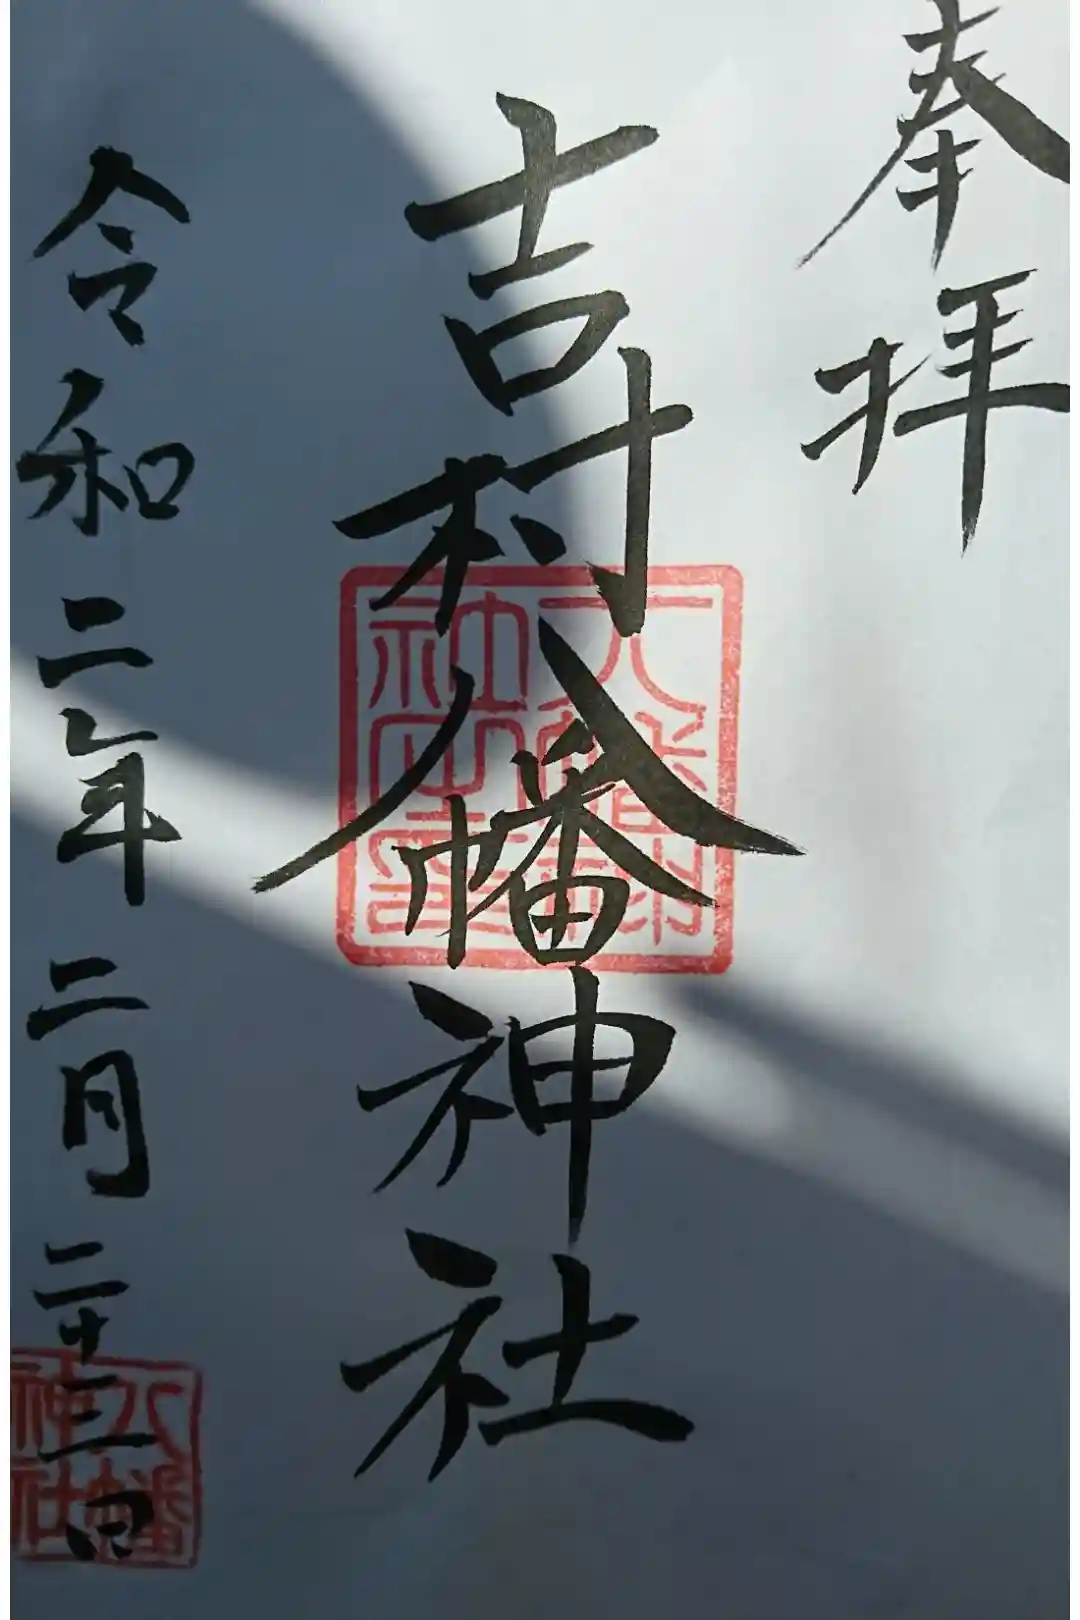 奉拝
吉村八幡神社
令和二年二月二十三日
八幡神社